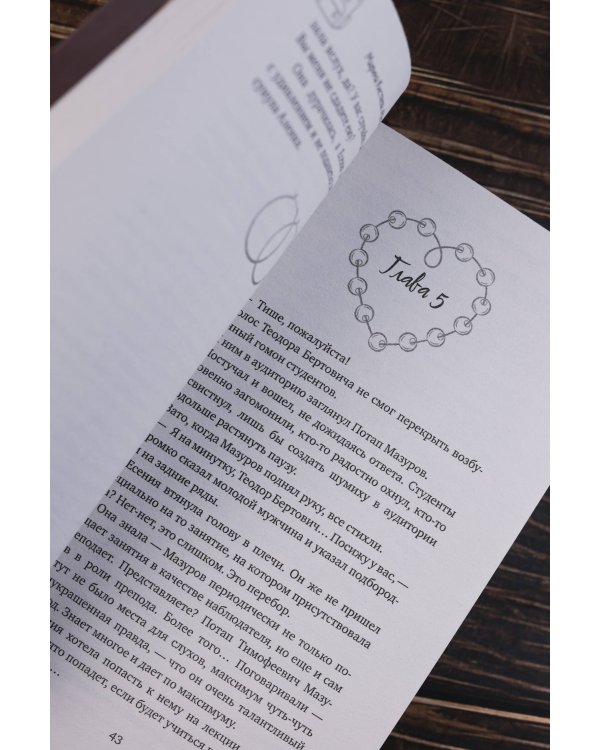 пала вслух, да? У вас
Вы меня не сдадите?
Она дурачилась, а
с удивлением и не
Глава 5
— Тише, пожалуйста!
олос Теодора Бертовича не смог перекрыть возбу-
нный гомон студентов.
ним в аудиторию заглянул Потап Мазуров.
Постучал и вошел, не дожидаясь ответа. Студенты
овенно загомонили, кто-то радостно охнул, кто-то
свистнул, лишь бы создать шумиху в аудитории
одольше растянуть паузу.
ато, когда Мазуров поднял руку, все стихли.
— Я на минутку, Теодор Бертович... Посижу у вас, —
ромко сказал молодой мужчина и указал подбород-
на задние ряды.
Есения втянула голову в плечи. Он же не пришел
циально на то занятие, на котором присутствовала
а? Нет-нет, это слишком. Это перебор.
Она знала — Мазуров периодически не только по-
щает занятия в качестве наблюдателя, но еще и сам
еподает. Представляете? Потап Тимофеевич Мазу-
в в роли препода. Более того... Поговаривали —
тут не было места для слухов, максимум чуть-чуть
украшенная правда, — что он очень талантливый
од. Знает многое и дает по максимуму.
ия хотела попасть к нему на лекции
что попадет, если будет учиться
...
43